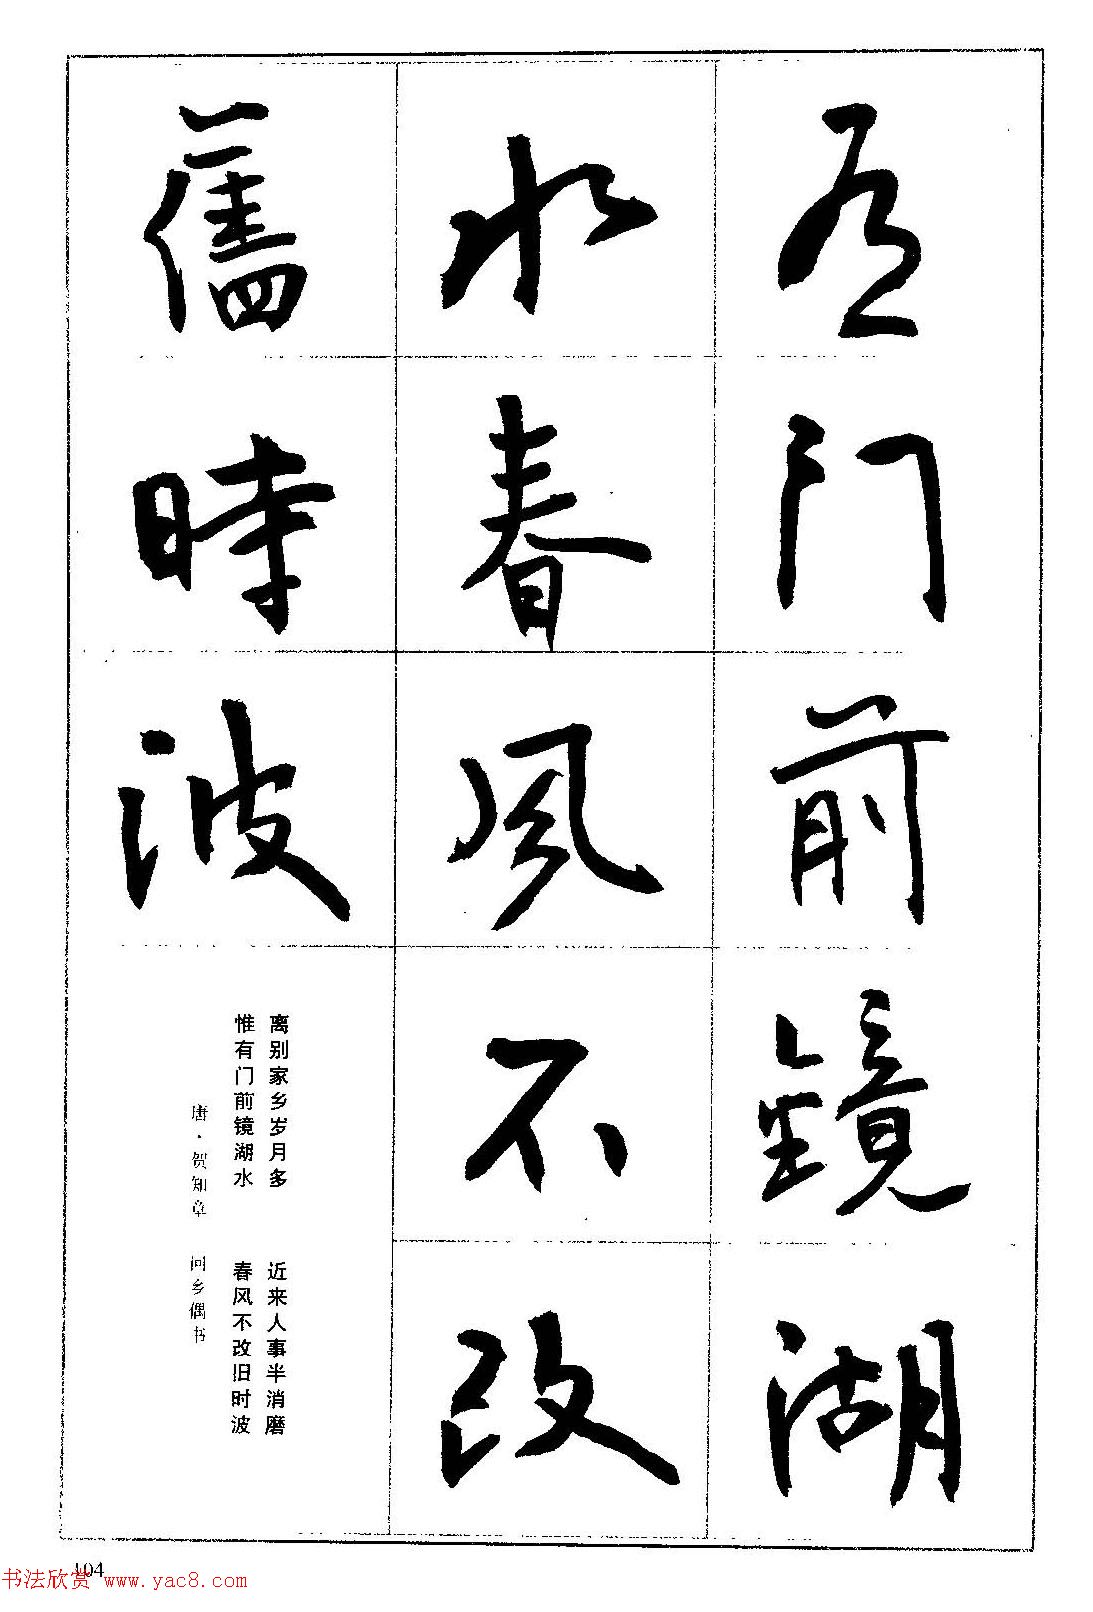 有门前镜湖
水春风不改
舊時波
离别家乡岁月多 近来人事半消磨
惟有门前镜湖水 春风不改旧时波
唐·贺知章 回乡偶书
104
书法欣赏 www.yac8.com